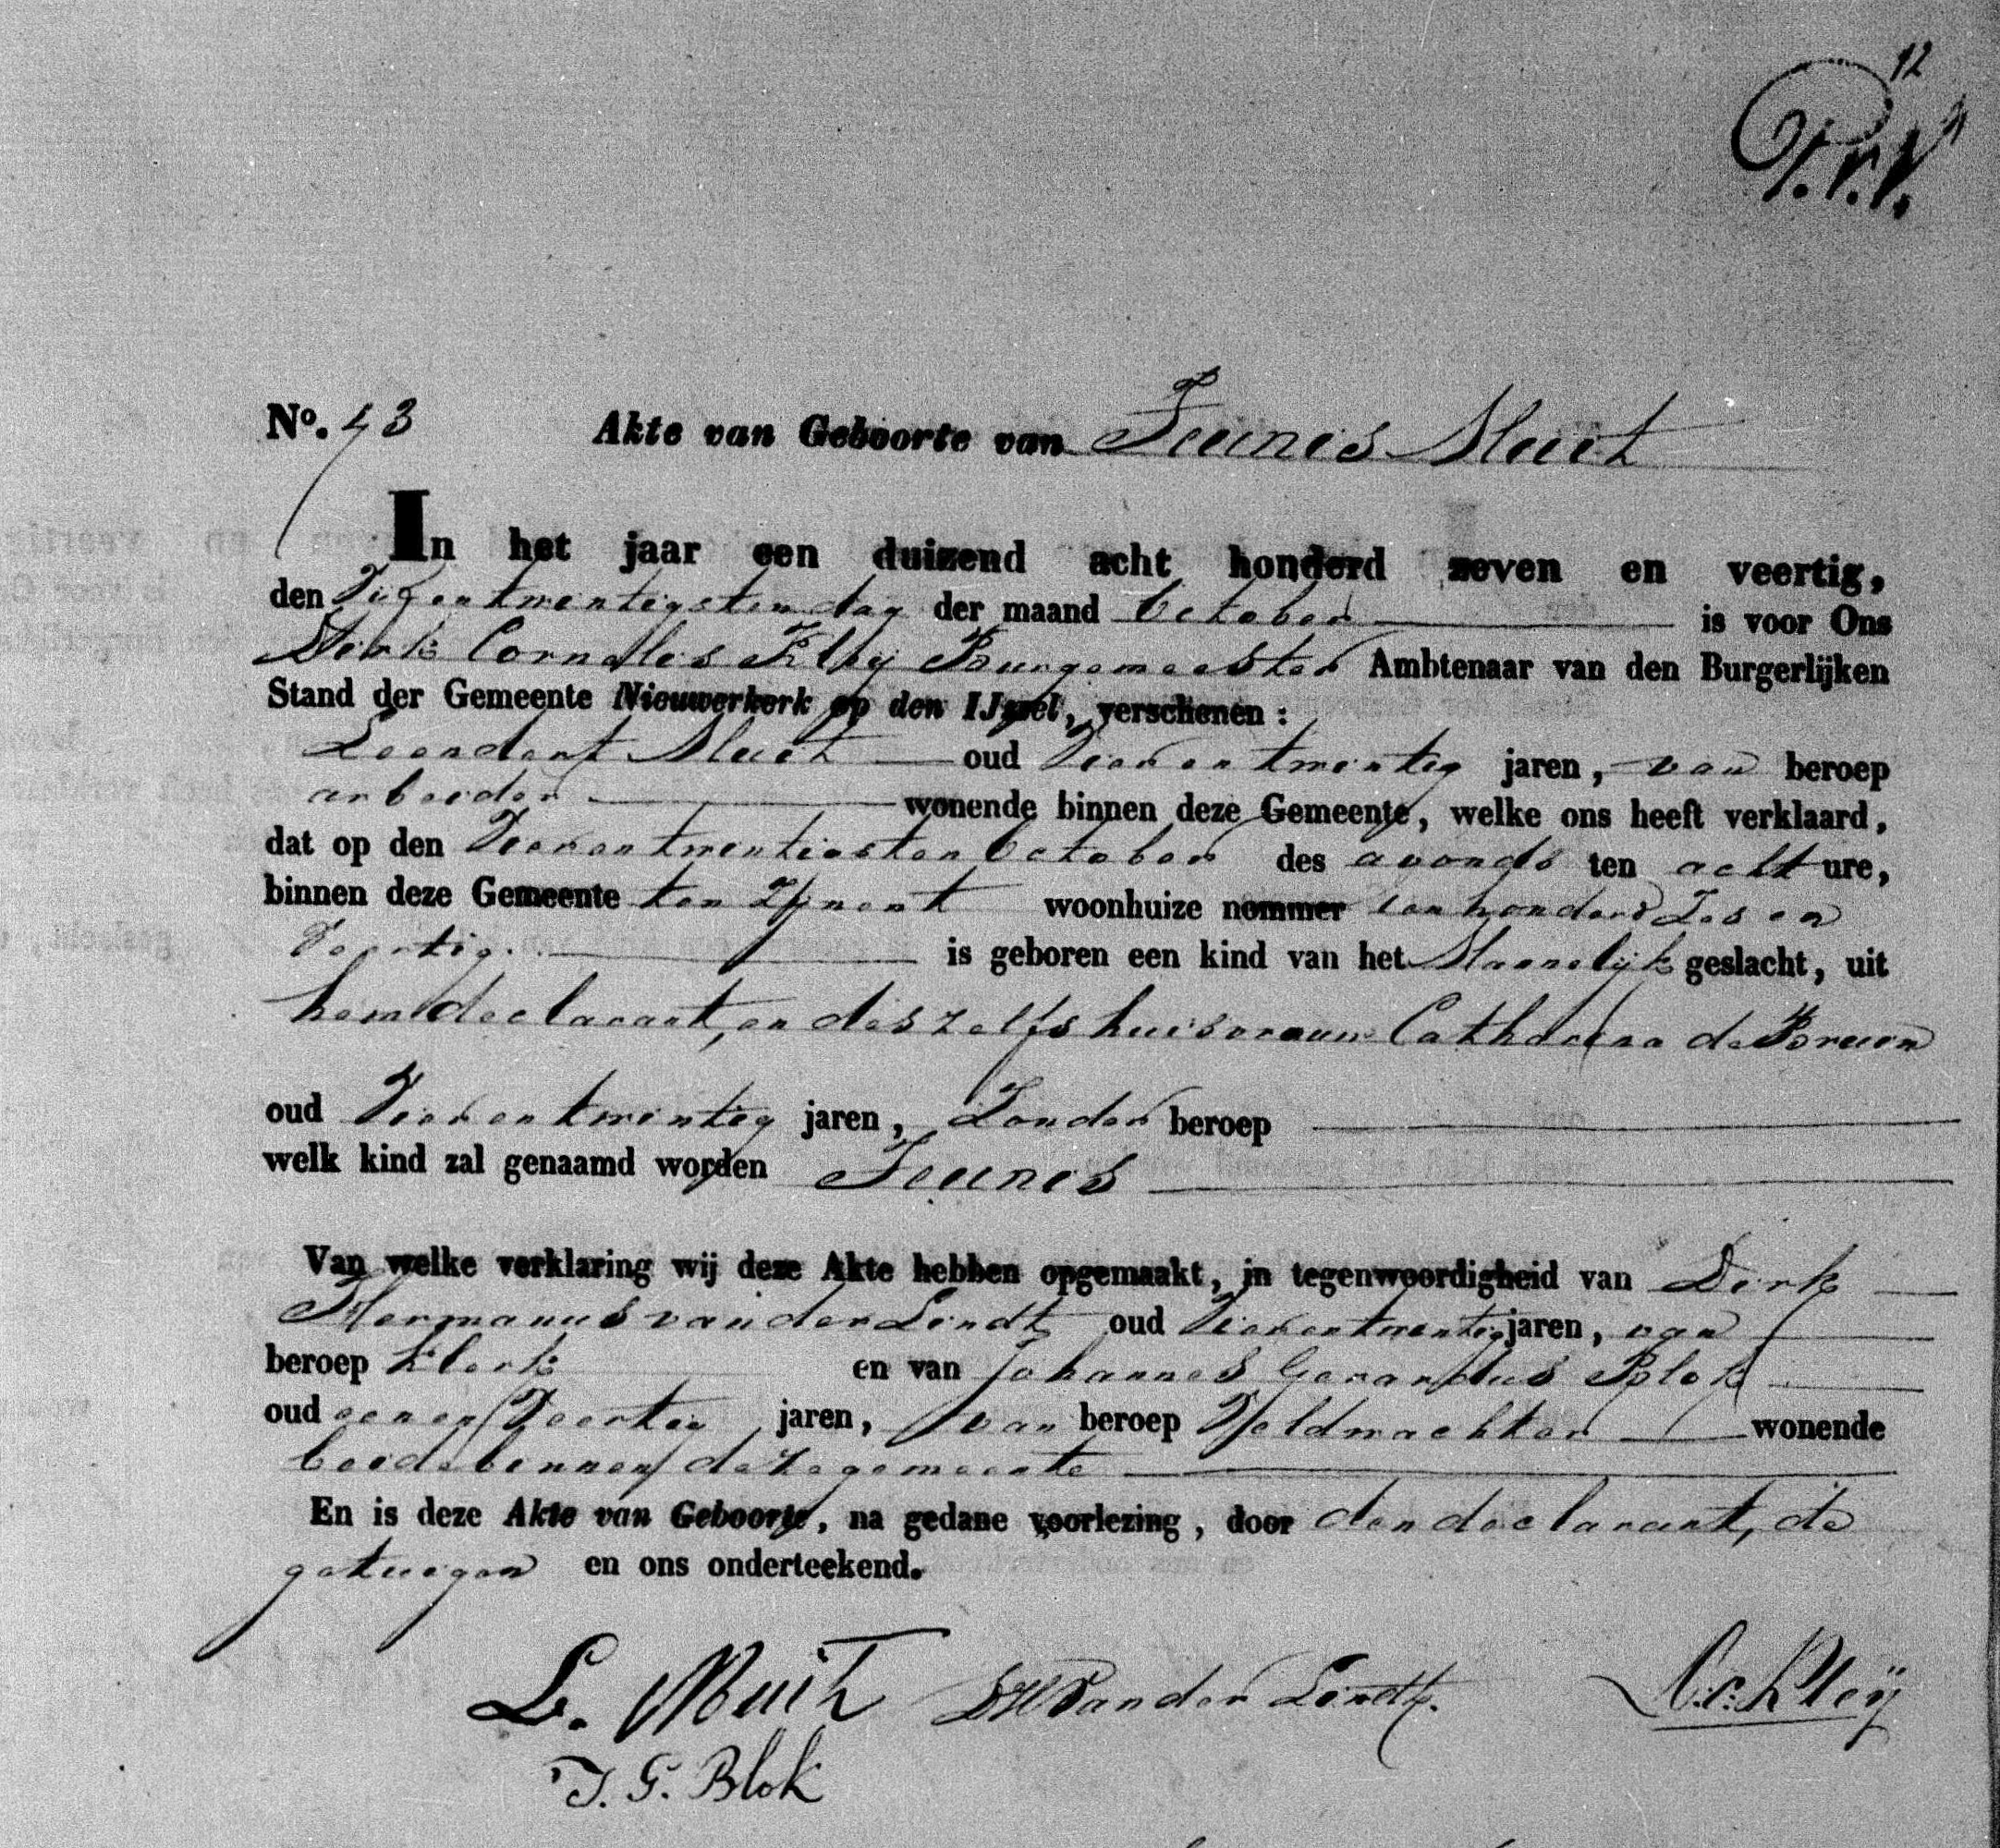 12
P.v.V.
No. 43 Akte van Geboorte van Teunis Muit
In het jaar een duizend acht honderd zeven en veertig,
den Vijfentwintigsten dag der maand October is voor Ons
Dirk Cornelis Kleij Burgemeester Ambtenaar van den Burgerlijken
Stand der Gemeente Nieuwerkerk op den IJssel, verschenen:
Leendert Muit oud Vierentwintig jaren, van beroep
arbeider wonende binnen deze Gemeente, welke ons heeft verklaard,
dat op den Vierentwintigsten October des avonds ten acht ure,
binnen deze Gemeente ten zijnent woonhuize nommer een honderd Zes en
Veertig is geboren een kind van het Mannelijk geslacht, uit
hem declarant, en deszelfs huisvrouw Catharina de Bruin
oud Vierentwintig jaren, Zonder beroep
welk kind zal genaamd worden Teunis
Van welke verklaring wij deze Akte hebben opgemaakt, in tegenwoordigheid van Dirk
Hermanus van der Lindt oud Vierentwintig jaren, van
beroep klerk en van Johannes Gerardus Blok
oud een en Veertig jaren, van beroep Veldwachter wonende
beide binnen deze gemeente
En is deze Akte van Geboorte, na gedane voorlezing, door den declarant, de
getuigen en ons onderteekend.
L. Muit DH Van der Lindt. D.C. Kleij
J. G. Blok